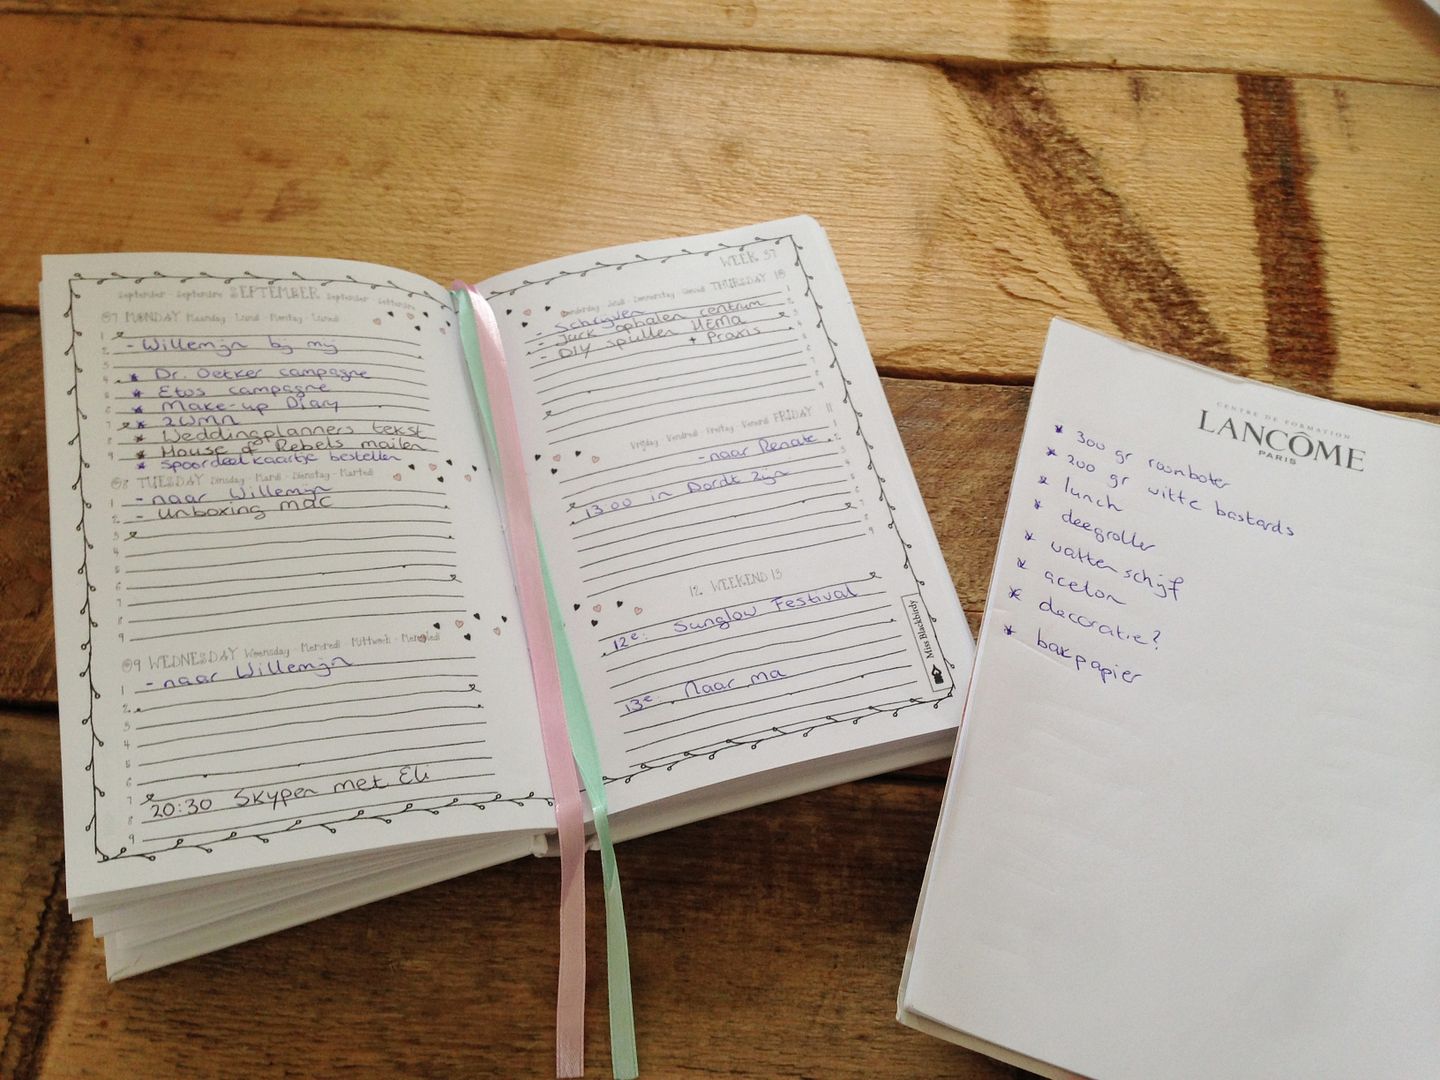 September · Septembre SEPTEMBER September · Settembre
07 MONDAY Maandag · Lundi · Montag · Lunedi
- Willemijn bij mij
* Dr. Oetker campagne
* Etos campagne
* Make-up Diary
* 2WMN
* Weddingplanners tekst
* House of Rebels mailen
* spoordeelkaartje bestellen
08 TUESDAY Dinsdag · Mardi · Dienstag · Martedi
- naar Willemijn
- Unboxing mac
09 WEDNESDAY Woensdag · Mercredi · Mittwoch · Mercoledi
- naar Willemijn
20:30 Skypen met Eli
WEEK 37
Donderdag · Jeudi · Donnerstag · Giovedi THURSDAY 10
- Schrijven
- Jurk ophalen centrum
- DIY spullen HEMA
+ Praxis
Vrijdag · Vendredi · Freitag · Venerdi FRIDAY 11
- naar Renate
13:00 in Dordt zijn
12. WEEKEND 13
12e: Sunglow Festival
13e: Naar ma
Miss Blackbirdy
CENTRE DE FORMATION
LANCÔME
PARIS
* 300 gr roomboter
* 200 gr witte bastards
* lunch
* deegroller
* wattenschijf
* aceton
* decoratie?
* bakpapier